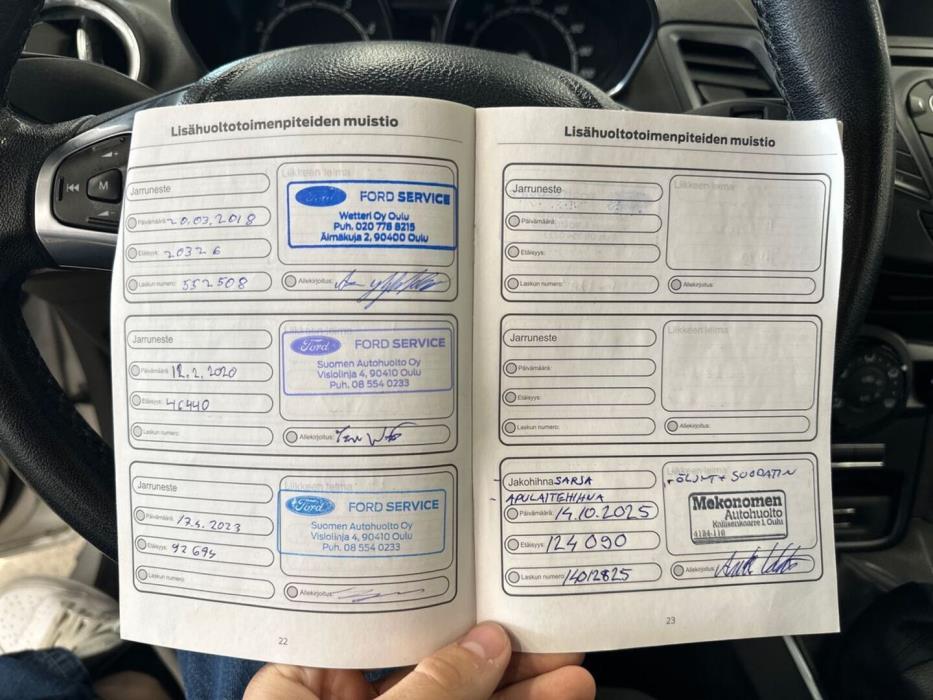 Lisähuoltotoimenpiteiden muistio
Jarruneste
Päivämäärä: 20.03.2018
Etäisyys: 20326
Laskun numero: 552508
Liikkeen leima
Ford FORD SERVICE
Wetteri Oy Oulu
Puh. 020 778 8215
Äimäkuja 2, 90400 Oulu
Allekirjoitus:
Jarruneste
Päivämäärä: 12.2.2020
Etäisyys: 46440
Laskun numero:
Liikkeen leima
Ford FORD SERVICE
Suomen Autohuolto Oy
Visiolinja 4, 90410 Oulu
Puh. 08 554 0233
Allekirjoitus:
Jarruneste
Päivämäärä: 17.4.2023
Etäisyys: 92694
Laskun numero:
Liikkeen leima
Ford FORD SERVICE
Suomen Autohuolto Oy
Visiolinja 4, 90410 Oulu
Puh. 08 554 0233
Allekirjoitus:
22
Lisähuoltotoimenpiteiden muistio
Jarruneste
Päivämäärä:
Etäisyys:
Laskun numero:
Liikkeen leima
Allekirjoitus:
Jarruneste
Päivämäärä:
Etäisyys:
Laskun numero:
Liikkeen leima
Allekirjoitus:
Jakohihna SARJA
- APULAITEHIHNA
Päivämäärä: 14.10.2025
Etäisyys: 124090
Laskun numero: 14012825
Liikkeen leima
+ SUODATIN
Mekonomen
Autohuolto
Kallisenkaarre 1 Oulu
Allekirjoitus:
23
M